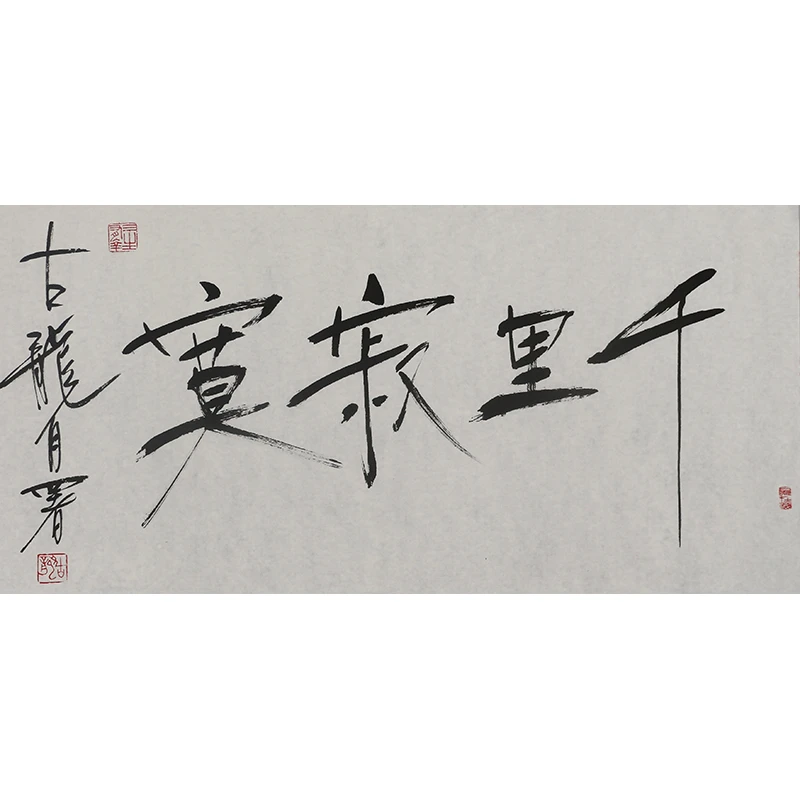 千里寂寞
古龍自署